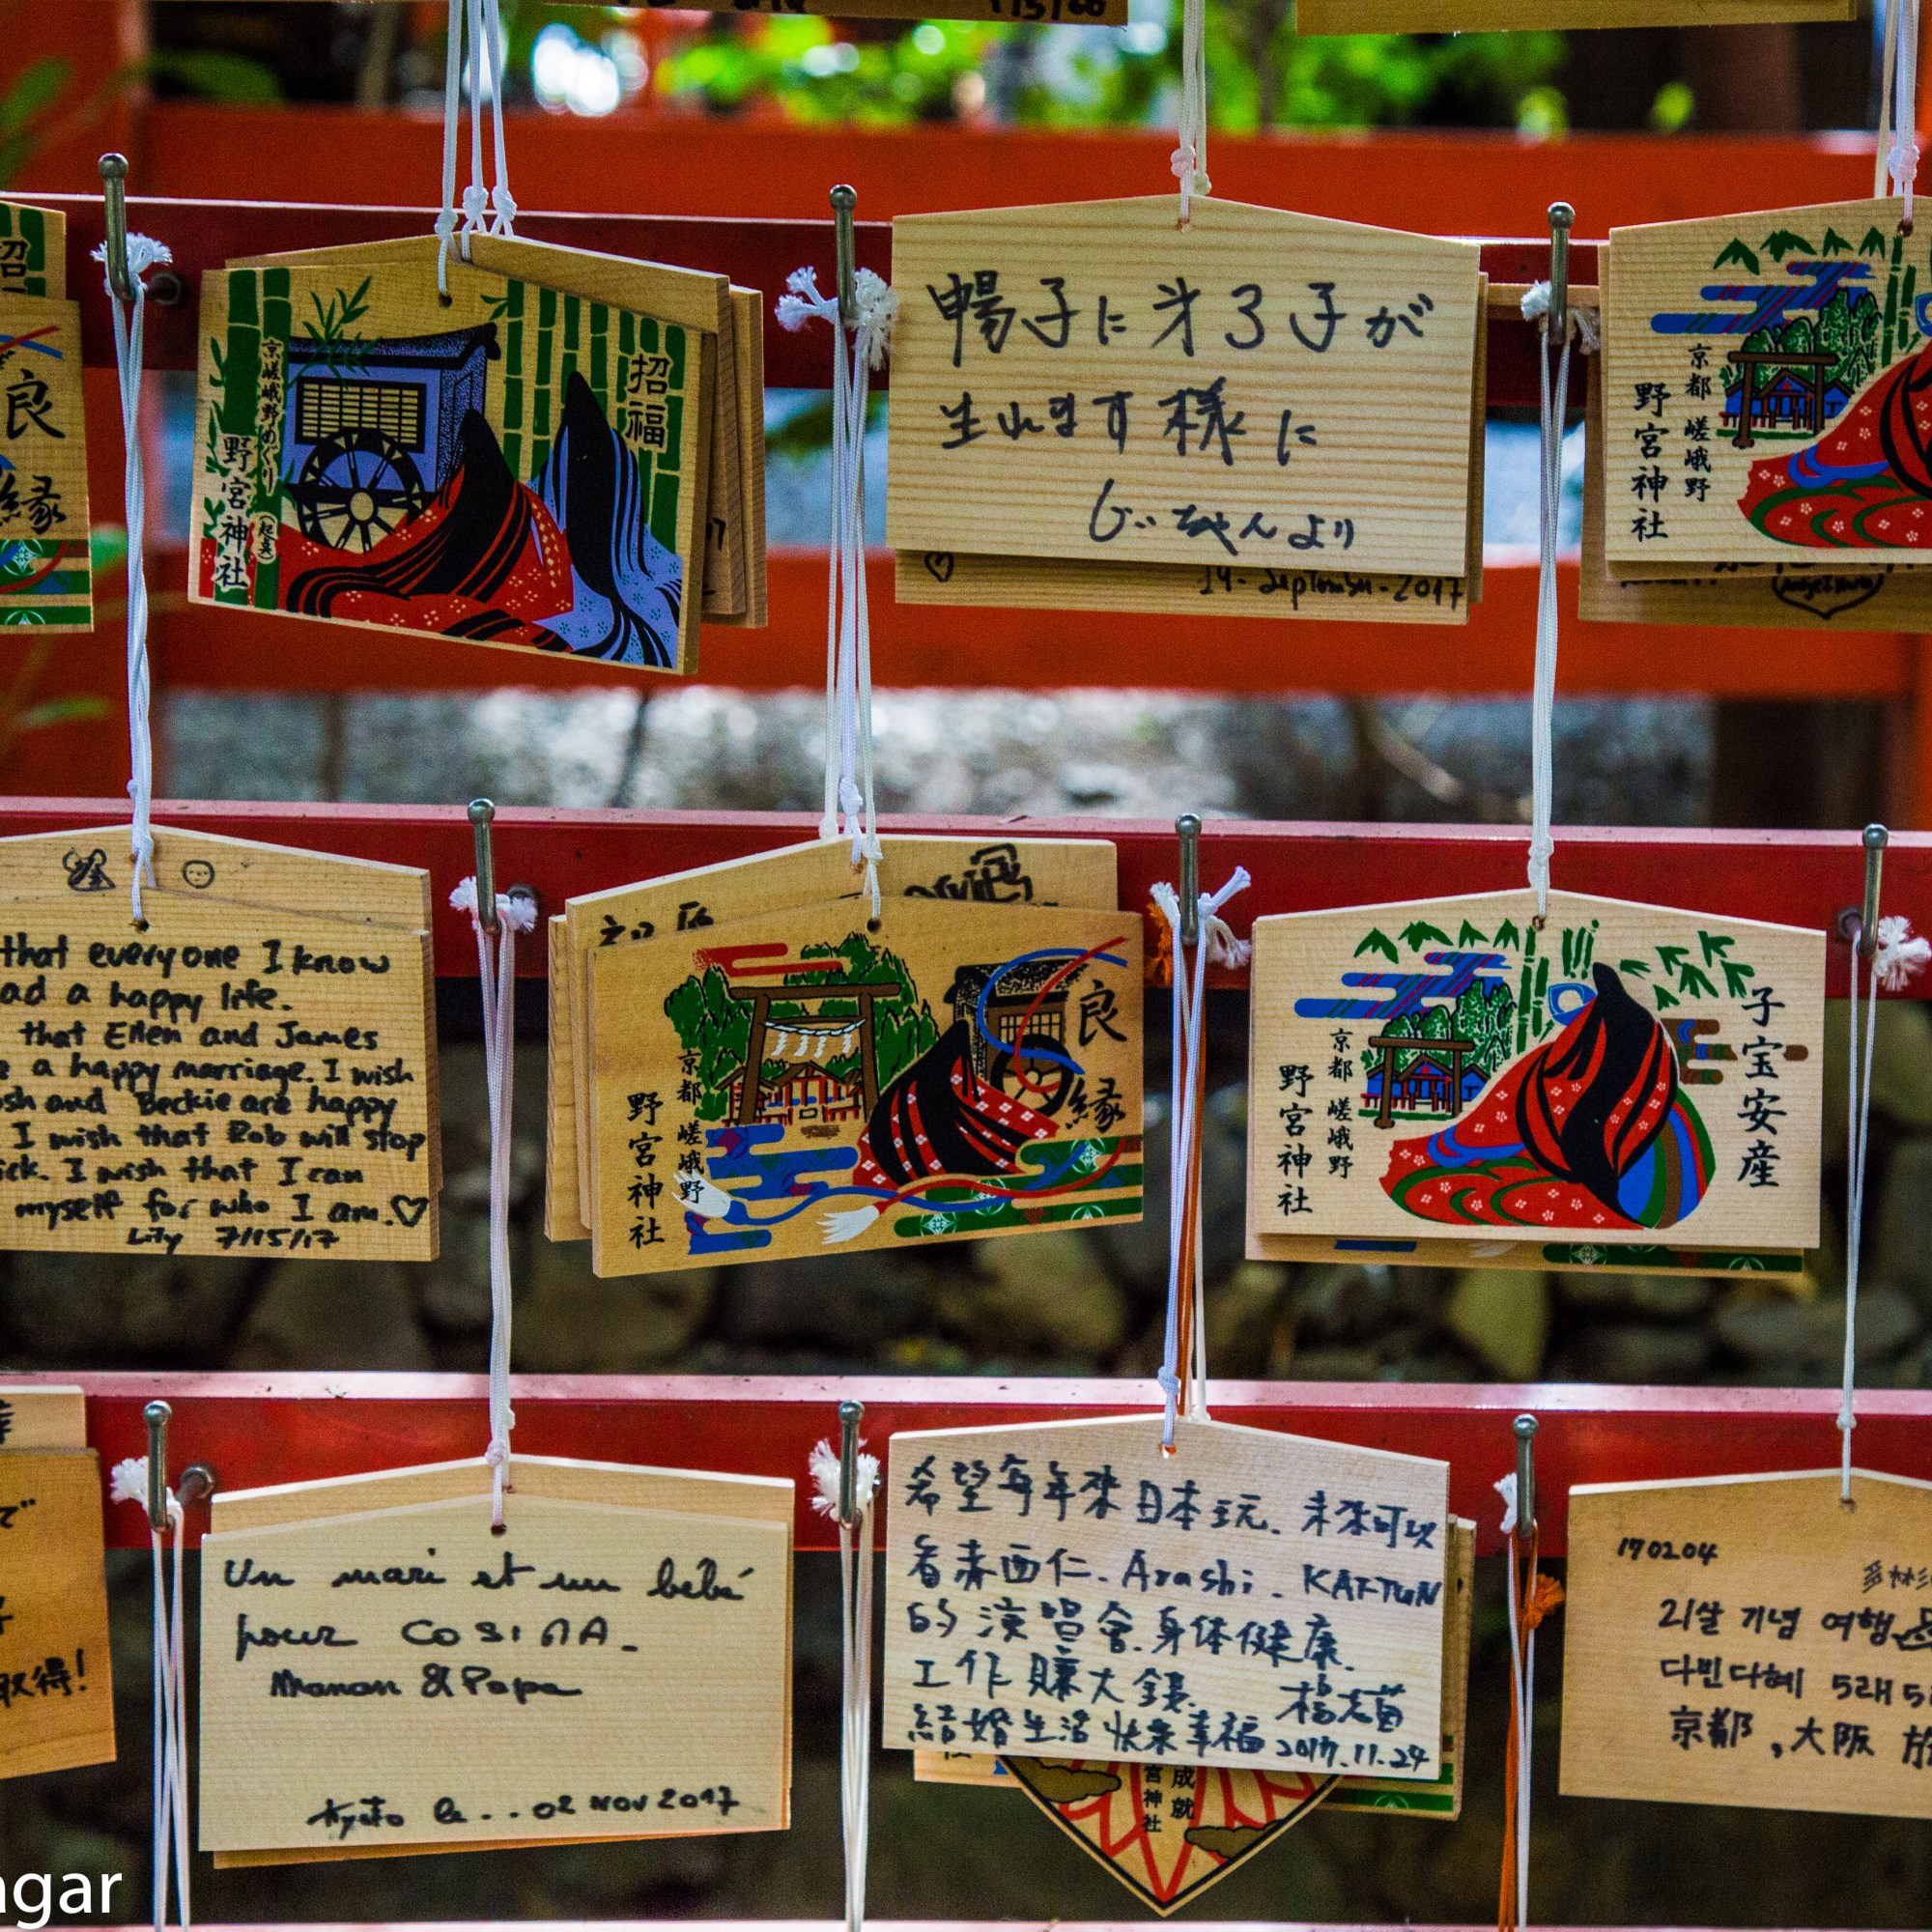 招
良
縁
京嵯峨野めぐり
野宮神社
招福
暢子に才3子が
生れます様に
じいちゃんより
14-September-2017
京都 嵯峨野
野宮神社
that everyone I know
ad a happy life.
that Ellen and James
a happy marriage. I wish
osh and Beckie are happy
I wish that Rob will stop
ick. I wish that I can
myself for who I am.♡
Lily 7/15/17
良縁
京都 嵯峨野
野宮神社
子宝安産
京都 嵯峨野
野宮神社
で
取得!
Un mari et un bébé
pour COSIMA.
Maman & Papa
Kyoto le .. 02 NOV 2017
希望每年來日本玩. 未來可以
看赤西仁. Arashi. KAT-TUN
的演唱會.身体健康.
工作賺大錢.
結婚生活快樂幸福 2017.11.24
成就
宮神社
170204
21살 기념 여행
다민다혜 5래5
京都, 大阪
agar